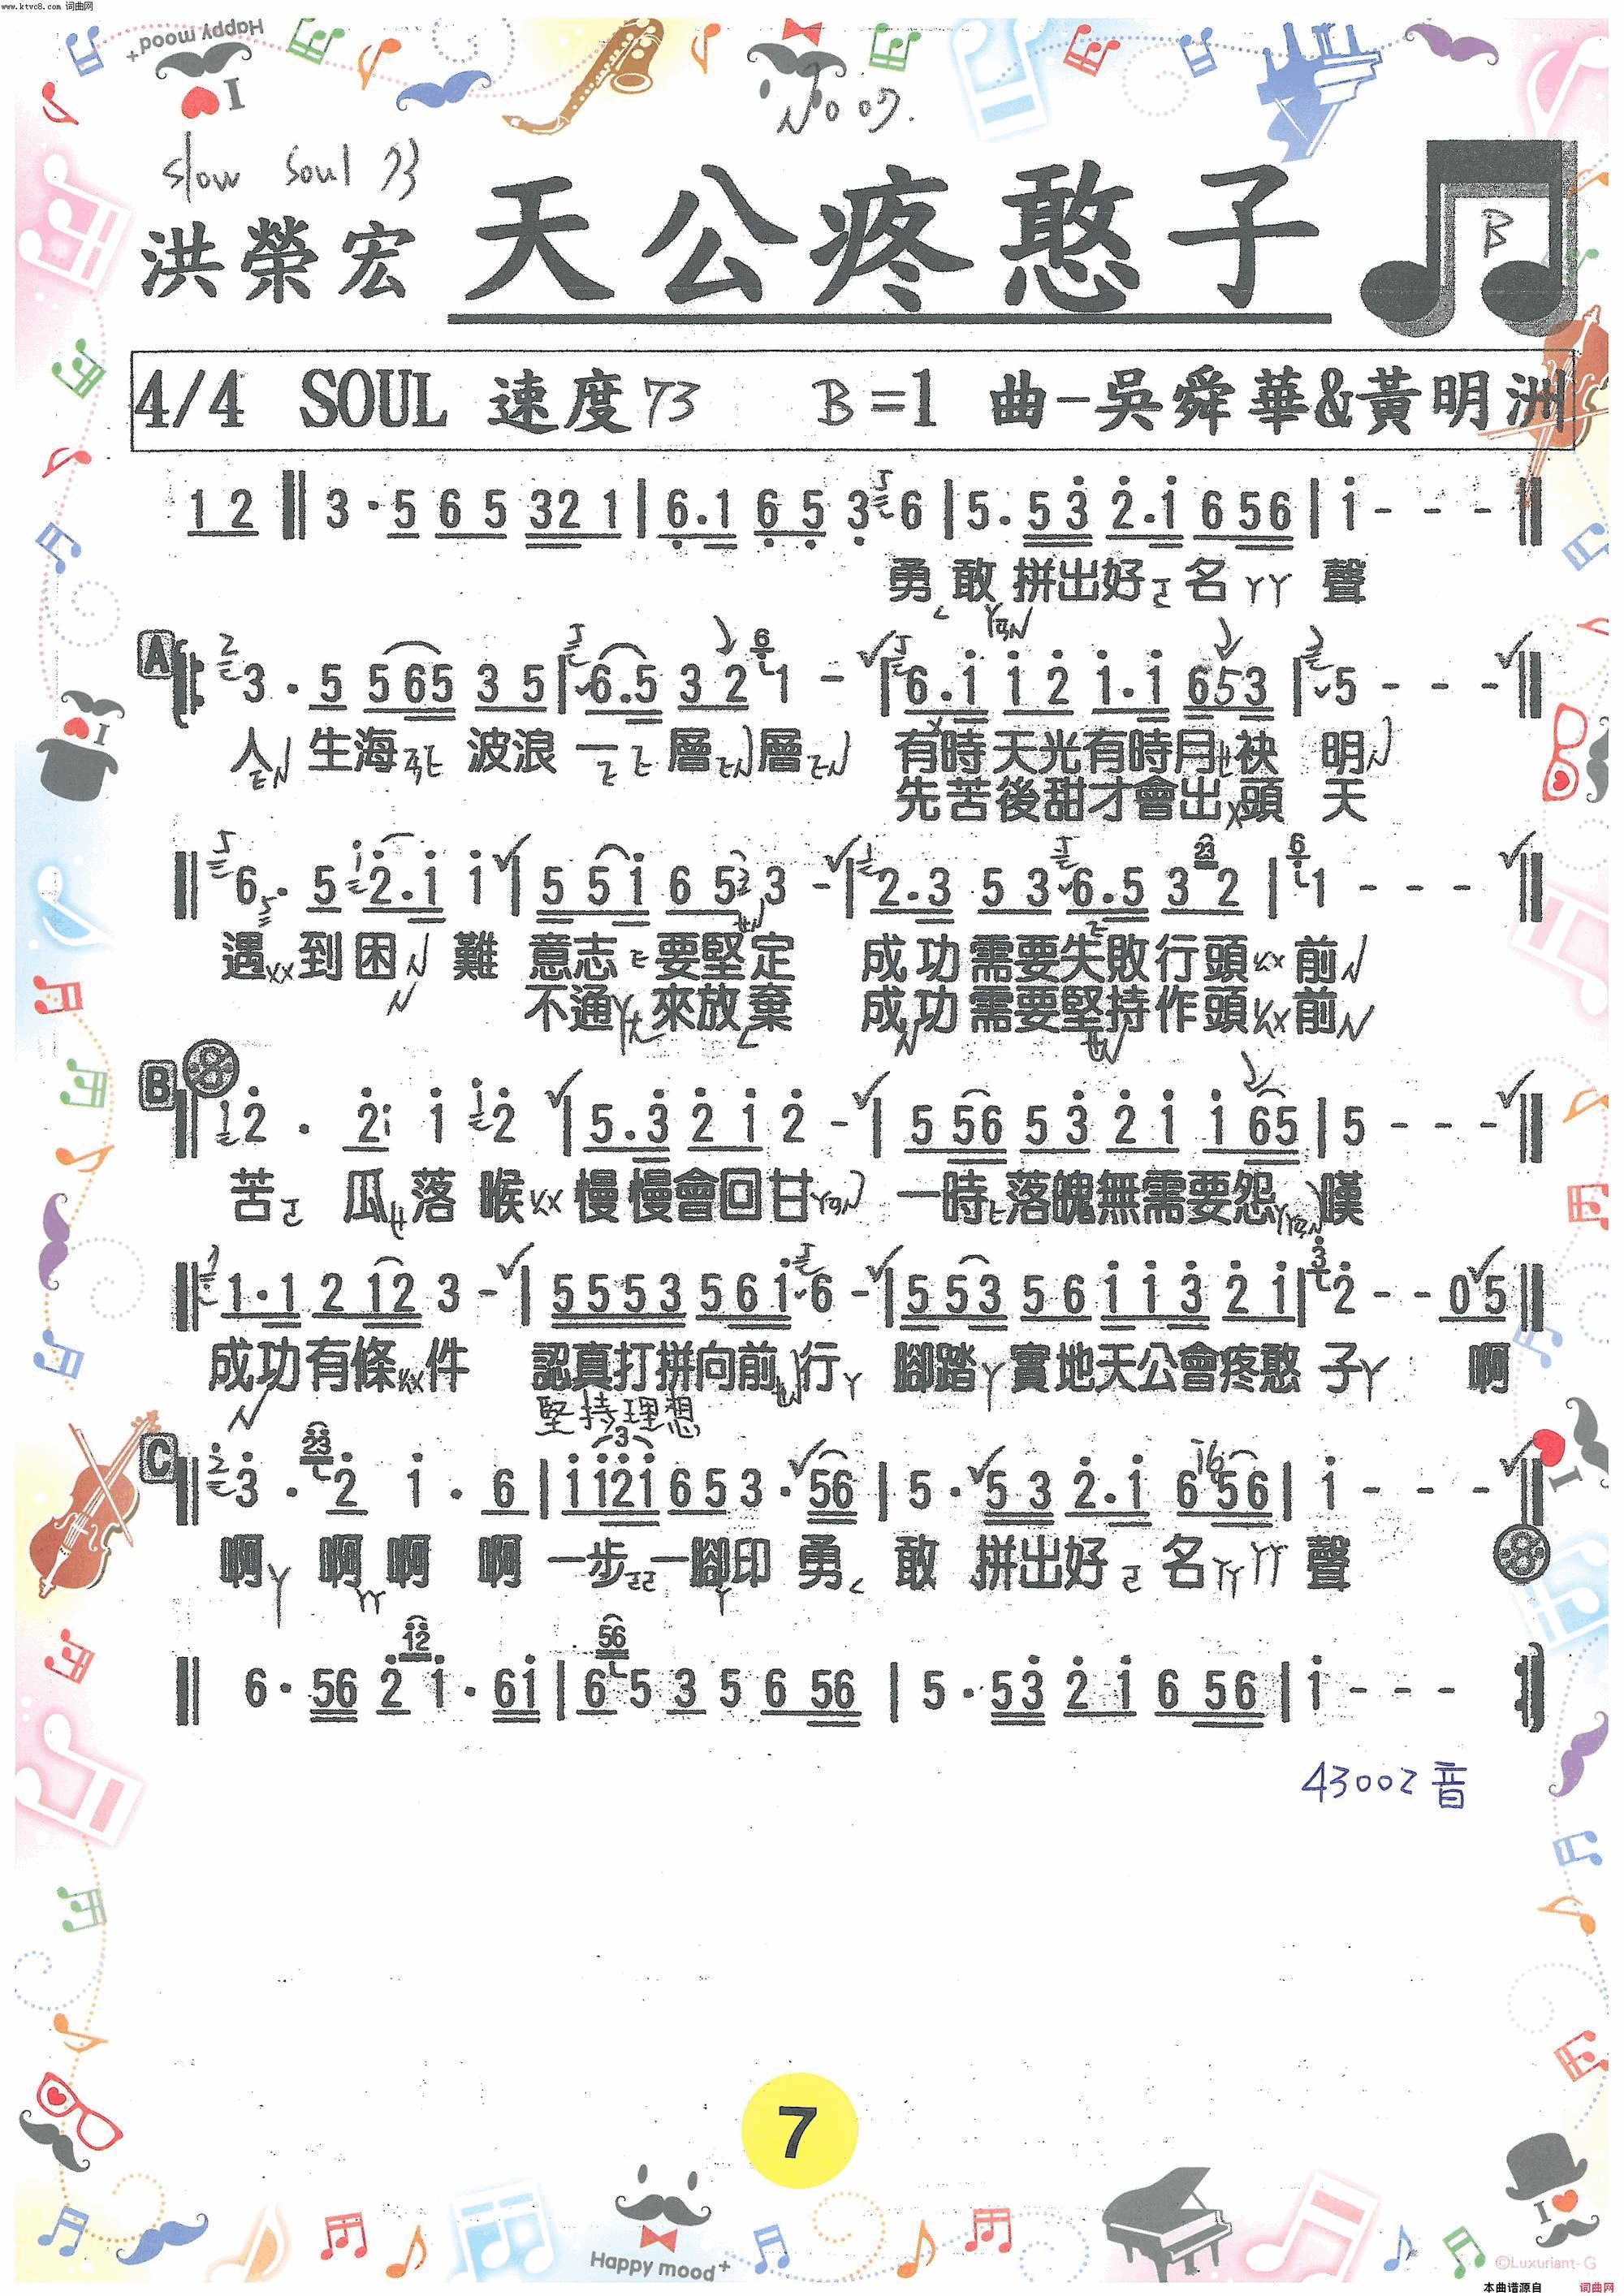 www.ktvc8.com 词曲网
Happy mood+
I
No 07.
slow soul 73
洪榮宏 天公疼憨子
B
4/4 SOUL 速度73 B=1 曲-吳舜華&黃明洲
1 2 ‖ 3 · 5 6 5 32 1 | 6.1 6 5 3 6 | 5. 5 3 2.1 6 56 | 1 - - - ‖
勇敢拼出好名聲
A
3 . 5 565 3 5 | 6.5 3 2 1 - | 6.1 1 2 1.1 653 | 5 - - - ‖
人生海波浪一層層 有時天光有時月袂明
先苦後甜才會出頭天
‖ 6. 5 2.1 1 | 5 51 6 5 3 - | 2.3 5 3 6.5 3 2 | 1 - - - ‖
遇到困難意志要堅定 成功需要失敗行頭前
不通來放棄 成功需要堅持作頭前
B
‖ 2 . 21 1 2 | 5.3 2 1 2 - | 5 56 5 3 2 1 1 65 | 5 - - - ‖
苦瓜落喉慢慢會回甘 一時落魄無需要怨嘆
‖ 1.1 2 12 3 - | 5553 561 6 - | 5 53 5 6 1 1 3 2 1 | 2 - - 0 5 ‖
成功有條件 認真打拼向前行 腳踏實地天公會疼憨子 啊
堅持理想
C
‖ 3 . 2 1 . 6 | 1121 653 . 56 | 5 . 5 3 2.1 6 56 | 1 - - - ‖
啊啊啊啊一步一腳印勇敢拼出好名聲
‖ 6 · 56 2 1 . 61 | 6 5 3 5 6 56 | 5 . 53 2 1 6 56 | 1 - - -
43002音
7
Happy mood+
©Luxuriant-G
本曲谱源自 词曲网